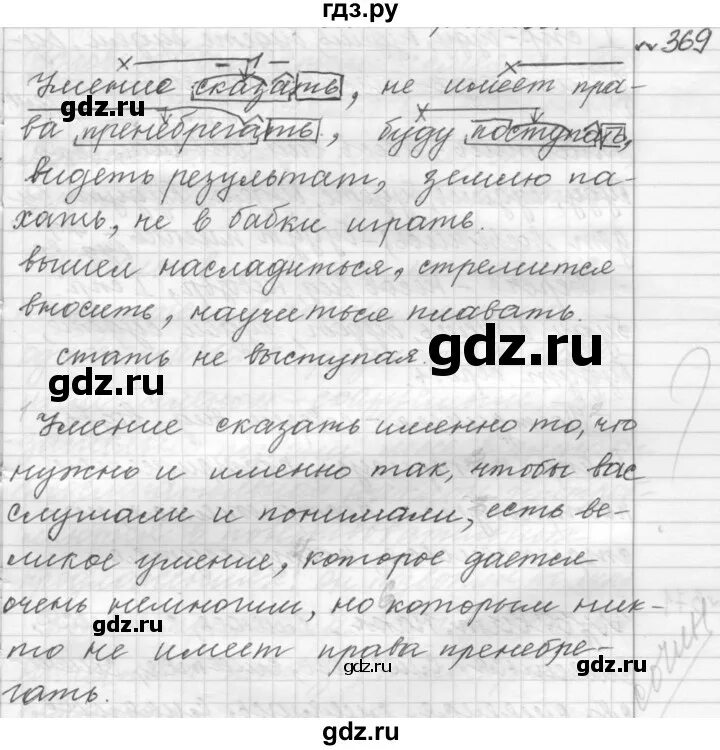 гдз.ру
№ 369
Умение сказать, не имеет пра-
gdz.ru
ва пренебрегать, буду поступать,
видеть результат, землю па-
хать, не в бабки играть.
вышел насладиться, стремится
вносить, научиться плавать.
стать не выступая
gdz.ru
gdz.ru
Умение сказать именно то, что
нужно и именно так, чтобы вас
слушали и понимали, есть ве-
ликое умение, которое дается
очень немногим, но которым ник-
gdz.ru
то не имеет права пренебре-
gdz.ru
gdz.ru
гать.
gdz.ru